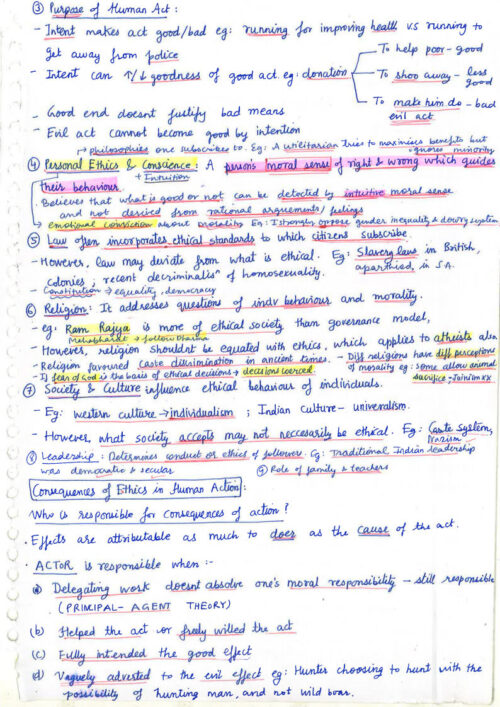 ③ Purpose of Human Act :
- Intent makes act good/bad eg: running for improving health v.s running to
get away from police
- Intent can ↑/↓ goodness of good act. eg: donation
To help poor - good
To shoo away - less good
To make him do - bad evil act
- Good end doesnt justify bad means
- Evil act cannot become good by intention
→ philosophies one subscribes to. Eg: A utilitarian tries to maximise benefits but ignores minority
④ Personal Ethics & Conscience : A person's moral sense of right & wrong which guides
+ Intuition
their behaviour.
- Believes that what is good or not can be detected by intuitive moral sense
and not derived from rational arguements/feelings
→ emotional conviction about morality Eg: I strongly oppose gender inequality & dowry system
⑤ Law often incorporates ethical standards to which citizens subscribe.
- However, law may deviate from what is ethical. Eg: Slavery laws in British
colonies, recent decriminalisⁿ of homosexuality. apartheid, in S.A.
- Constitution → equality, democracy
⑥ Religion : It addresses questions of indv behaviour and morality.
- eg: Ram Rajya is more of ethical society than governance model,
Mahabharat → follow Dharma
- However, religion shouldnt be equated with ethics, which applies to atheists also
- Religion favoured caste discrimination in ancient times. - Diff religions have diff perceptions
of morality eg: some allow animal
- If fear of God is the basis of ethical decisions → decisions coerced. sacrifice - Jainism xx
⑦ Society & Culture influence ethical behaviour of individuals.
- Eg: Western culture → individualism ; Indian culture - univeralism.
- However, what society accepts may not neccesarily be ethical. Eg: Caste System, Nazism
⑧ Leadership : Determines conduct or ethics of follower. Eg: Traditional Indian leadership
was democratic & secular ⑨ Role of family & teachers
Consequences of Ethics in Human Action :
Who is responsible for consequences of action ?
. Effects are attributable as much to doer as the cause of the act.
. ACTOR is responsible when :-
(a) Delegating work doesnt absolve one's moral responsibility - still responsible
(PRINCIPAL - AGENT THEORY)
(b) Helped the act or freely willed the act
(c) Fully intended the good effect
(d) Vaguely adverted to the evil effect eg: Hunter choosing to hunt with the
possibility of hunting man, and not wild boar.